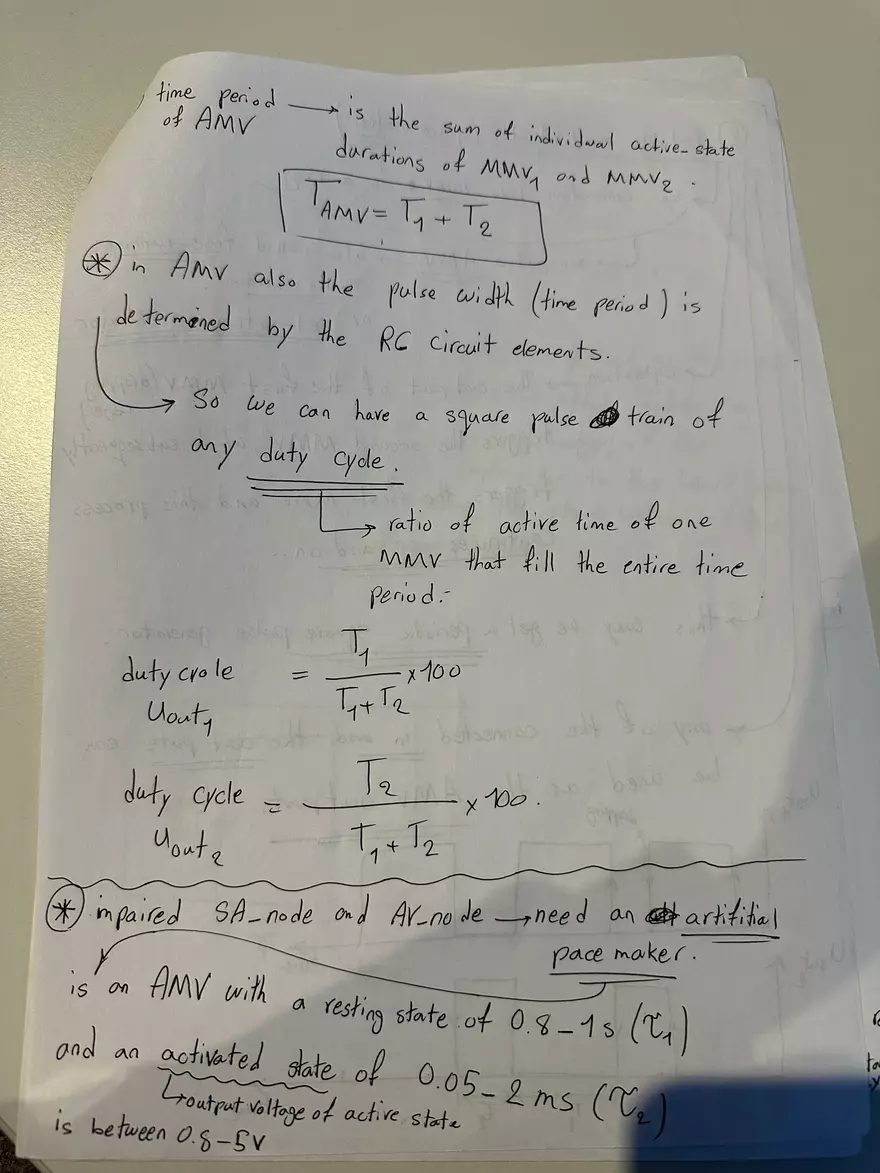 time period → is the sum of individual active-state
of AMV
durations of MMV₁ and MMV₂.
T_AMV = T₁ + T₂
* in AMV also the pulse width (time period) is
determined by the RC Circuit elements.
→ So we can have a square pulse train of
any duty cycle.
→ ratio of active time of one
MMV that fill the entire time
period.-
duty crole = T₁ / (T₁+T₂) ×100
Uout₁
duty cycle = T₂ / (T₁+T₂) ×100.
Uout₂
* impaired SA_node and AV_node → need an artifitial
pace maker.
is an AMV with a resting state of 0.8-1s (τ₁)
and an activated state of 0.05-2 ms (τ₂)
→ output voltage of active state
is between 0.8-5V